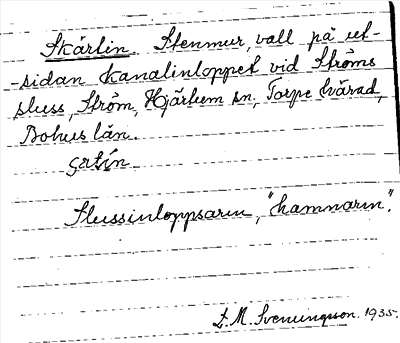 Skärlin. Stenmur, vall på ut-
-sidan kanalinloppet vid Ströms
sluss, Ström, Hjärtum sn, Torpe härad,
Bohus län.
Slussinloppsarm, "hamnarm".
L. M. Svenungsson. 1935.